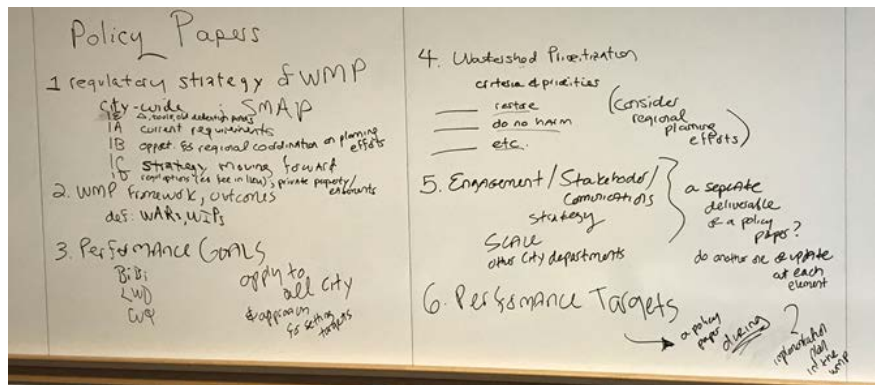 Policy Papers
1 regulatory strategy of WMP
City-wide ; SMAP
1A current requirements
1B opport. for regional coordination on planning
efforts
strategy moving forward
(ex fee in lieu); private property/
easements
2. WMP framework, outcomes
def: WARs, WIPs
3. Performance Goals
BiBi
LWD
CWQ
apply to
all city
& approach
for setting
targets
4. Watershed Prioritization
criteria & priorities
restore
do no harm
etc.
(consider
regional
planning
efforts)
5. Engagement/Stakeholder/
Communications
Strategy
SCALE
other city departments
a separate
deliverable
or a policy
paper?
do another one or update
at each
element
6. Performance Targets
a policy
paper during
implementation
plan
in the
WMP
?